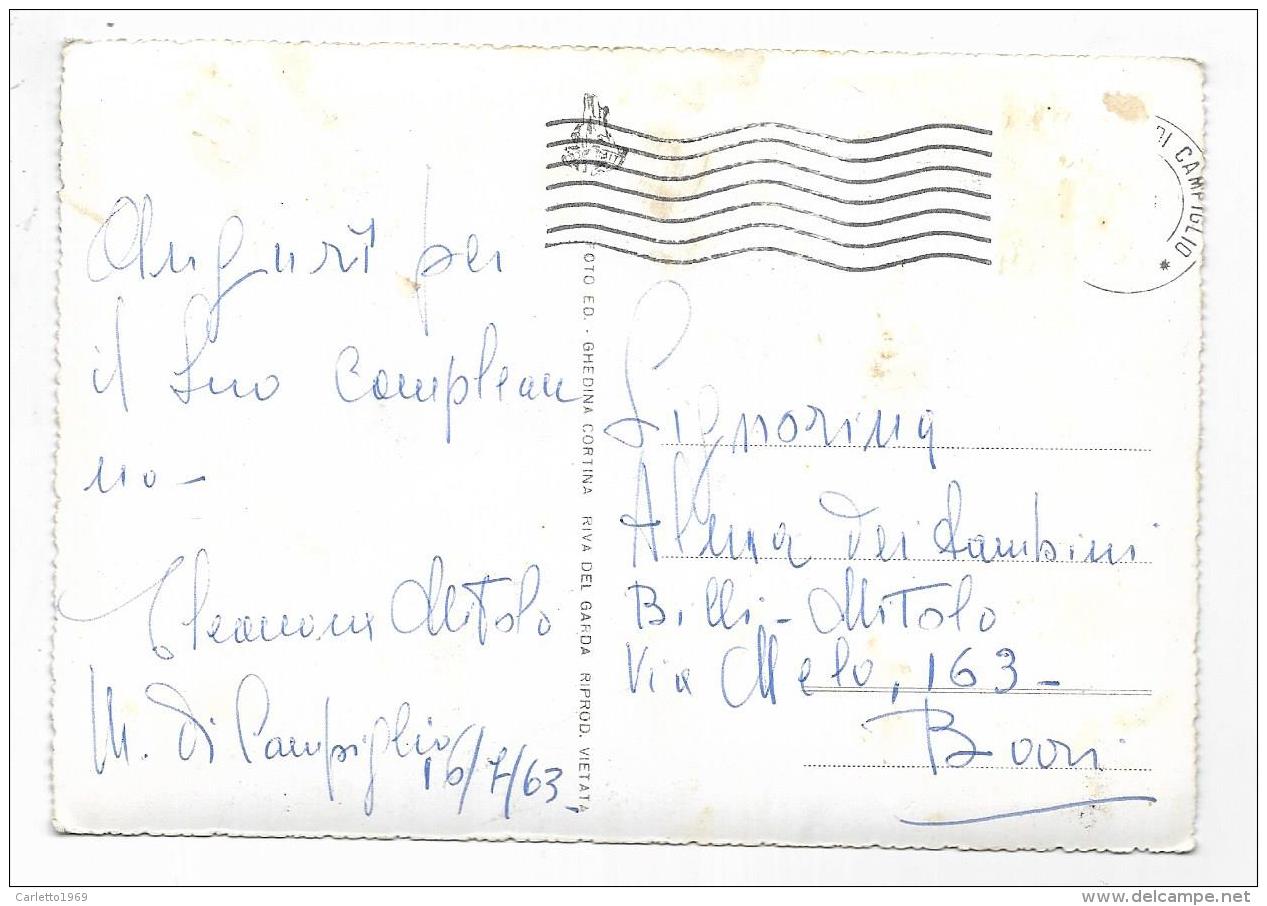 Auguri per
il Suo complean
no-
Eleonora Mitolo
M. di Campiglio
16/7/63-
FOTO ED. - GHEDINA CORTINA RIVA DEL GARDA RIPROD. VIETATA
DI CAMPIGLIO *
Signorina
Alma dei Bambini
Billi-Mitolo
Via Melo, 163-
Bari
Carletto1969
delcampe.net